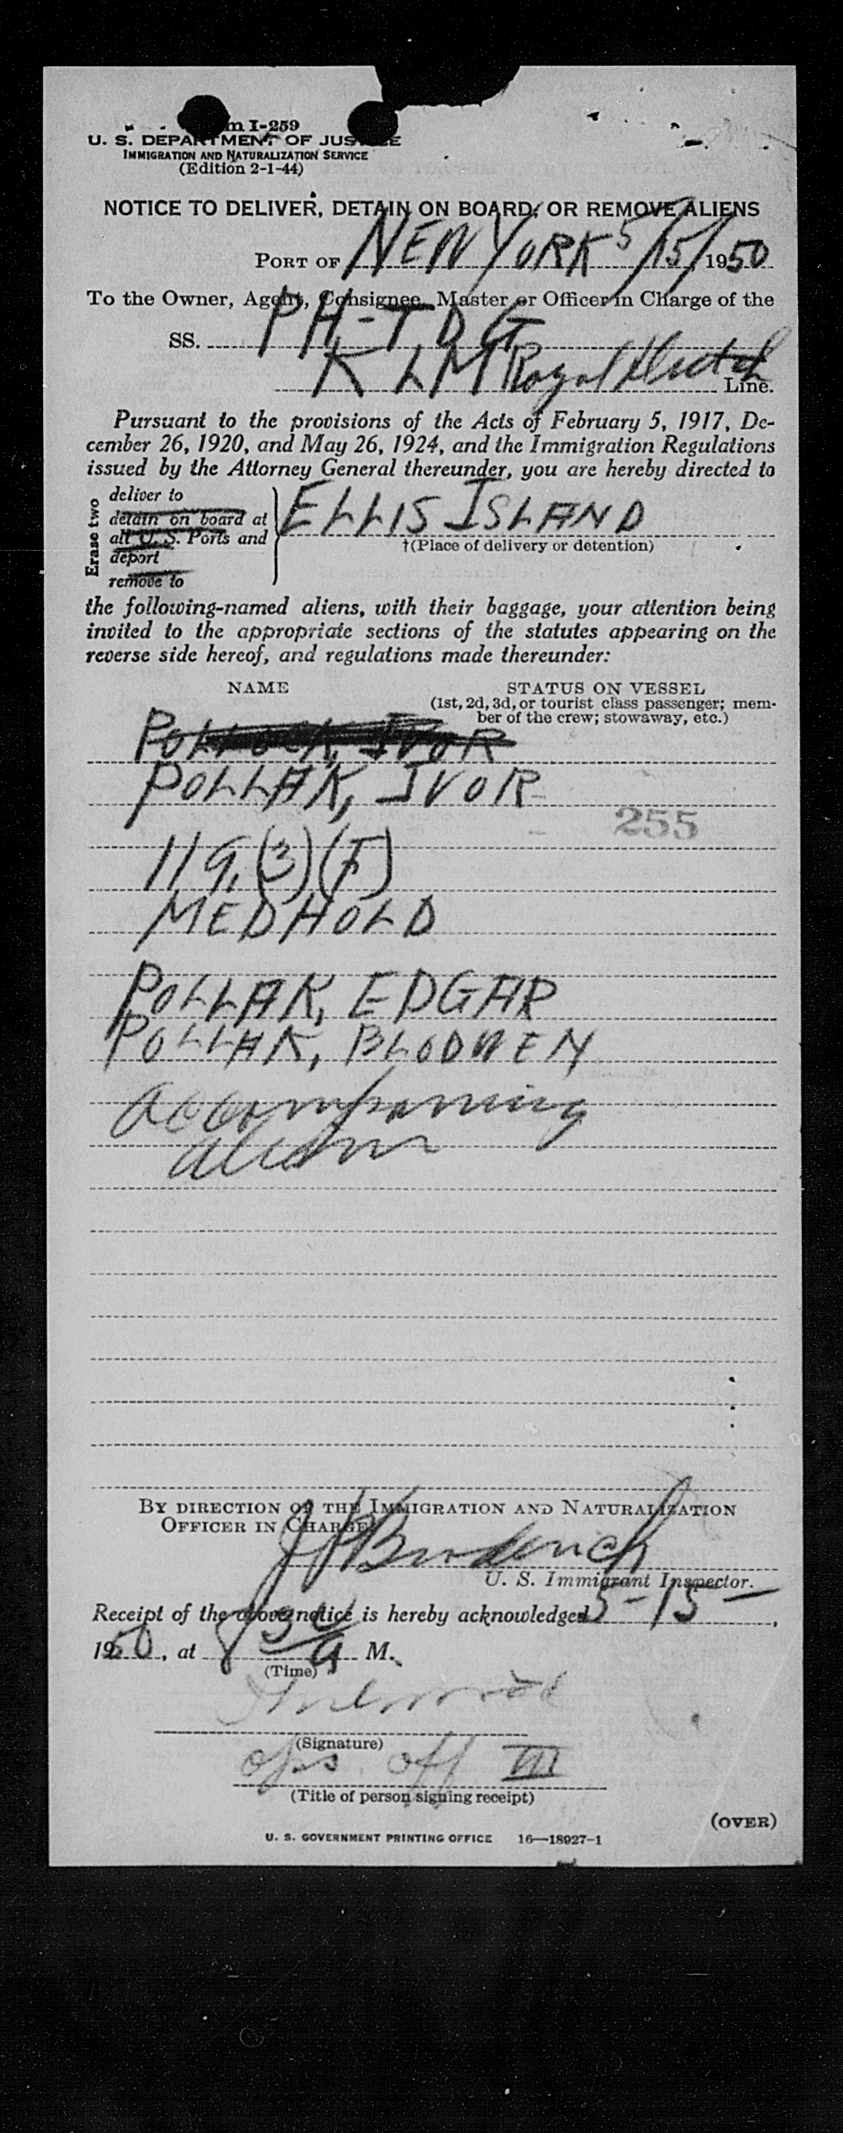 Form I-259
U. S. DEPARTMENT OF JUSTICE
IMMIGRATION AND NATURALIZATION SERVICE
(Edition 2-1-44)
NOTICE TO DELIVER, DETAIN ON BOARD, OR REMOVE ALIENS
PORT OF NEW YORK 5/15/1950
To the Owner, Agent, Consignee, Master or Officer in Charge of the
SS. PH-TDG
KLM Royal Dutch Line.
Pursuant to the provisions of the Acts of February 5, 1917, De-
cember 26, 1920, and May 26, 1924, and the Immigration Regulations
issued by the Attorney General thereunder, you are hereby directed to
Erase two
deliver to
detain on board at
all U. S. Ports and
deport
remove to
ELLIS ISLAND
†(Place of delivery or detention)
the following-named aliens, with their baggage, your attention being
invited to the appropriate sections of the statutes appearing on the
reverse side hereof, and regulations made thereunder:
NAME STATUS ON VESSEL
(1st, 2d, 3d, or tourist class passenger; mem-
ber of the crew; stowaway, etc.)
POLLOCK, IVOR
POLLAK, IVOR
255
119.(3)(F)
MEDHOLD
POLLAK, EDGAR
POLLAK, BLODWEN
accompaning
aliens
BY DIRECTION OF THE IMMIGRATION AND NATURALIZATION
OFFICER IN CHARGE
J P Broderick
U. S. Immigrant Inspector.
Receipt of the above notice is hereby acknowledged 5-15-,
1950, at 8 30 A M.
(Time)
(Signature)
ops. off III
(Title of person signing receipt)
(OVER)
U. S. GOVERNMENT PRINTING OFFICE 16—18927-1